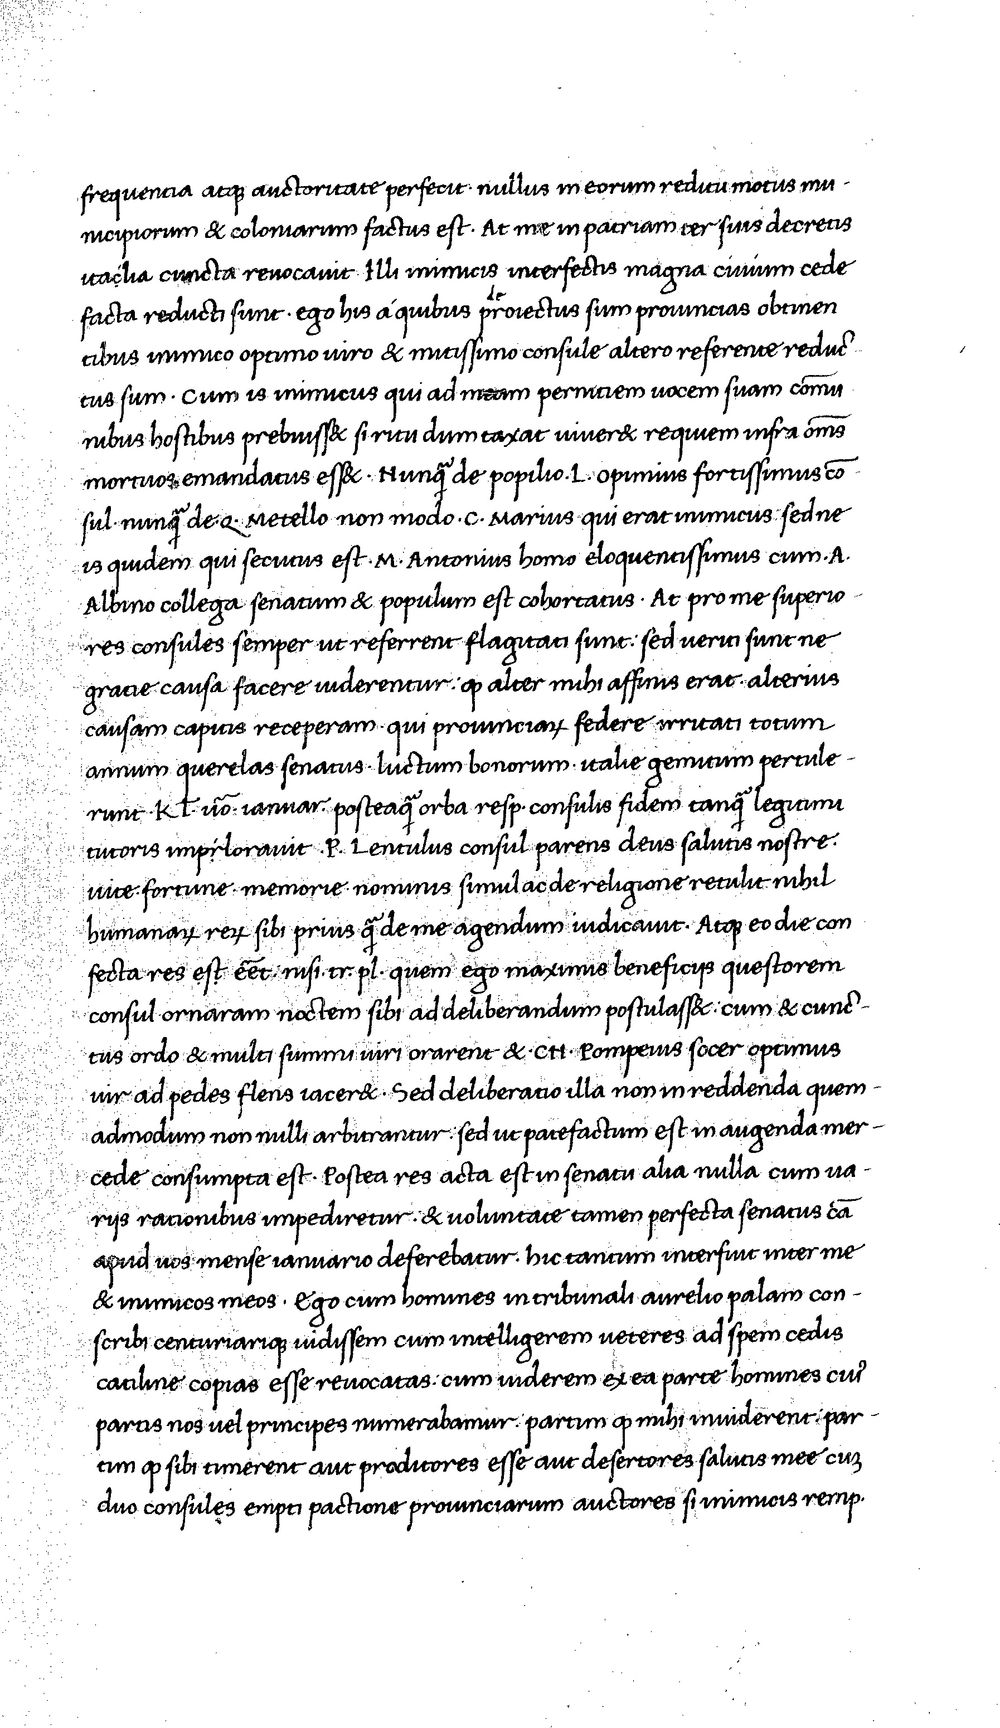 frequentia atq; auctoritate perfecit · nullus in eorum reditu motus mu-
nicipiorum & coloniarum factus est · At me in patriam ter suis decretis
itaclia cuncta revocavit · Illi inimicis interfectis magna civium cede
facta reducti sunt · ego his a quibus p̄roiectus sum provincias obtinen
tibus inimico optimo viro & mitissimo consule altero referente reduc
tus sum · Cum is inimicus qui ad meam pernitiem vocem suam cōmu
nibus hostibus prebuiss& si ritu dum taxat viver& requiem infra om̄s
mortuos emandatus ess& · Nunq̄ de popilio · L · opimius fortissimus cō
sul · nunq̄ de · Q · Metello non modo · C · Marius qui erat inimicus sed ne
is quidem qui secutus est · M · Antonius homo eloquentissimus cum · A ·
Albino collega senatum & populum est cohortatus · At pro me superio-
res consules semper ut referrent flagitati sunt : sed veriti sunt ne
gratie causa facere viderentur : ꝙ alter mihi affinis erat · alterius
causam capitis receperam · qui provinciaꝝ federe irritati totum
annum querelas senatus · luctum bonorum · italie gemitum pertule-
runt · Kl̄ · v̄o · ianuar · posteaq̄ orba resp · consulis fidem tanq̄ legitimi
tutoris imploravit · P · Lentulus consul parens deus salutis nostre ·
vite · fortune · memorie · nominis simul ac de religione retulit · nihil
humanaꝝ reꝝ sibi prius q̄ de me agendum iudicavit · Atq; eo die con
fecta res est eēt · nisi · tr · pl · quem ego maximis beneficijs questorem
consul ornaram noctem sibi ad deliberandum postulass& · cum & cunc-
tus ordo & multi summi viri orarent & · CN · Pompeius socer optimus
vir ad pedes flens iacer& · Sed deliberatio illa non in reddenda quem-
admodum non nulli arbitrantur · sed ut patefactum est in augenda mer-
cede consumpta est · Postea res acta est in senatu alia nulla cum va-
rijs rationibus impediretur · & voluntate tamen perfecta senatus cā̄
apud vos mense ianuario deferebatur · hic tantum interfuit inter me
& inimicos meos · Ego cum homines in tribunali aurelio palam con-
scribi centuriariq; vidissem cum intelligerem veteres ad spem cedis
catiline copias esse revocatas · cum viderem ex ea parte homines cui᾿
partis nos vel principes numerabamur · partim ꝙ mihi inviderent : par-
tim ꝙ sibi timerent aut proditores esse aut desertores salutis mee cuȝ
duo consules empti pactione provinciarum auctores si inimicis remp ·